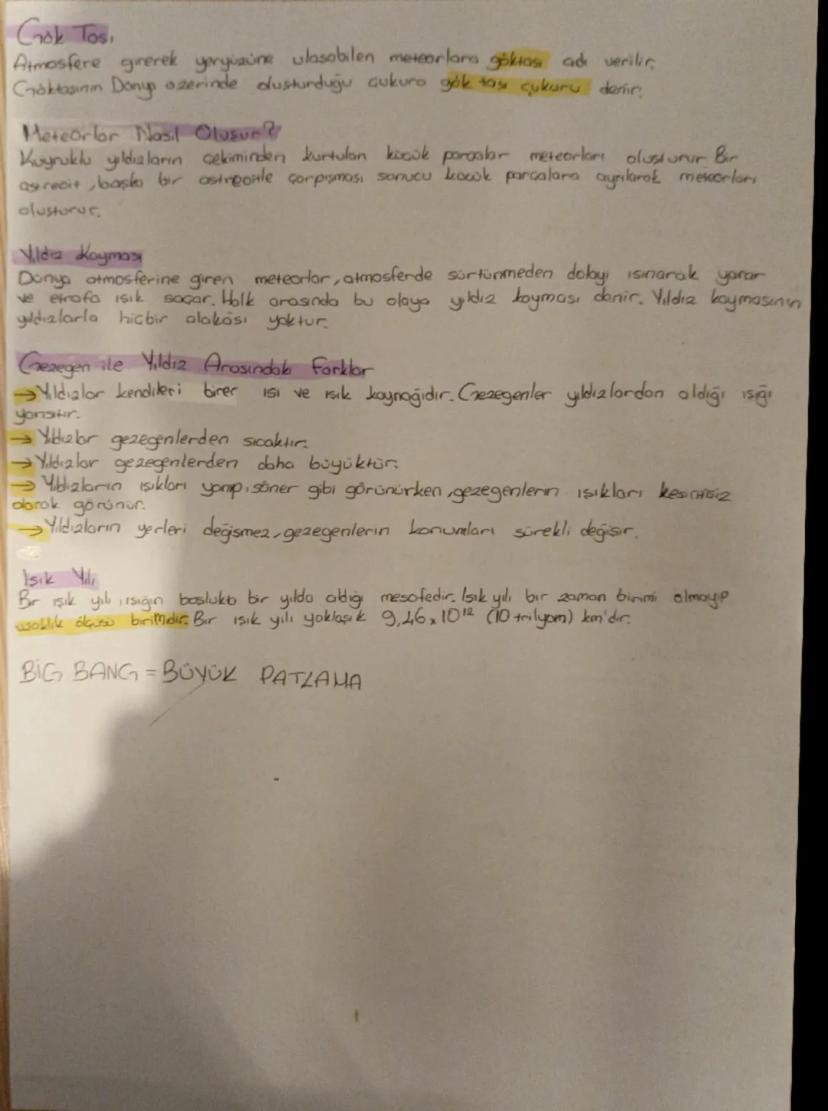 Gök Taşı
Atmosfere girerek yeryüzüne ulaşabilen meteorlara göktaşı adı verilir.
Göktaşının Dünya üzerinde oluşturduğu çukura gök taşı çukuru denir.
Meteorlar Nasıl Oluşur?
Kuyruklu yıldızların çekiminden kurtulan küçük parçalar meteorları oluşturur. Bir
asteroit, başka bir asteroitle çarpışması sonucu küçük parçalara ayrılarak meteorları
oluşturur.
Yıldız Kayması
Dünya atmosferine giren meteorlar, atmosferde sürtünmeden dolayı ısınarak yanar
ve etrafa ışık saçar. Halk arasında bu olaya yıldız kayması denir. Yıldız kaymasının
yıldızlarla hiçbir alakası yoktur.
Gezegen ile Yıldız Arasındaki Farklar
→ Yıldızlar kendileri birer ısı ve ışık kaynağıdır. Gezegenler yıldızlardan aldığı ışığı
yansıtır.
→ Yıldızlar gezegenlerden sıcaktır.
→ Yıldızlar gezegenlerden daha büyüktür.
→ Yıldızların ışıkları yanıp, söner gibi görünürken, gezegenlerin ışıkları kesintisiz
olarak görünür.
→ Yıldızların yerleri değişmez, gezegenlerin konumları sürekli değişir.
Işık Yılı
Bir ışık yılı, ışığın boşlukta bir yılda aldığı mesafedir. Işık yılı bir zaman birimi olmayıp
uzaklık ölçüsü birimidir. Bir ışık yılı yaklaşık 9,46 x 10¹² (10 trilyon) km'dir.
BİG BANG = BÜYÜK PATLAMA